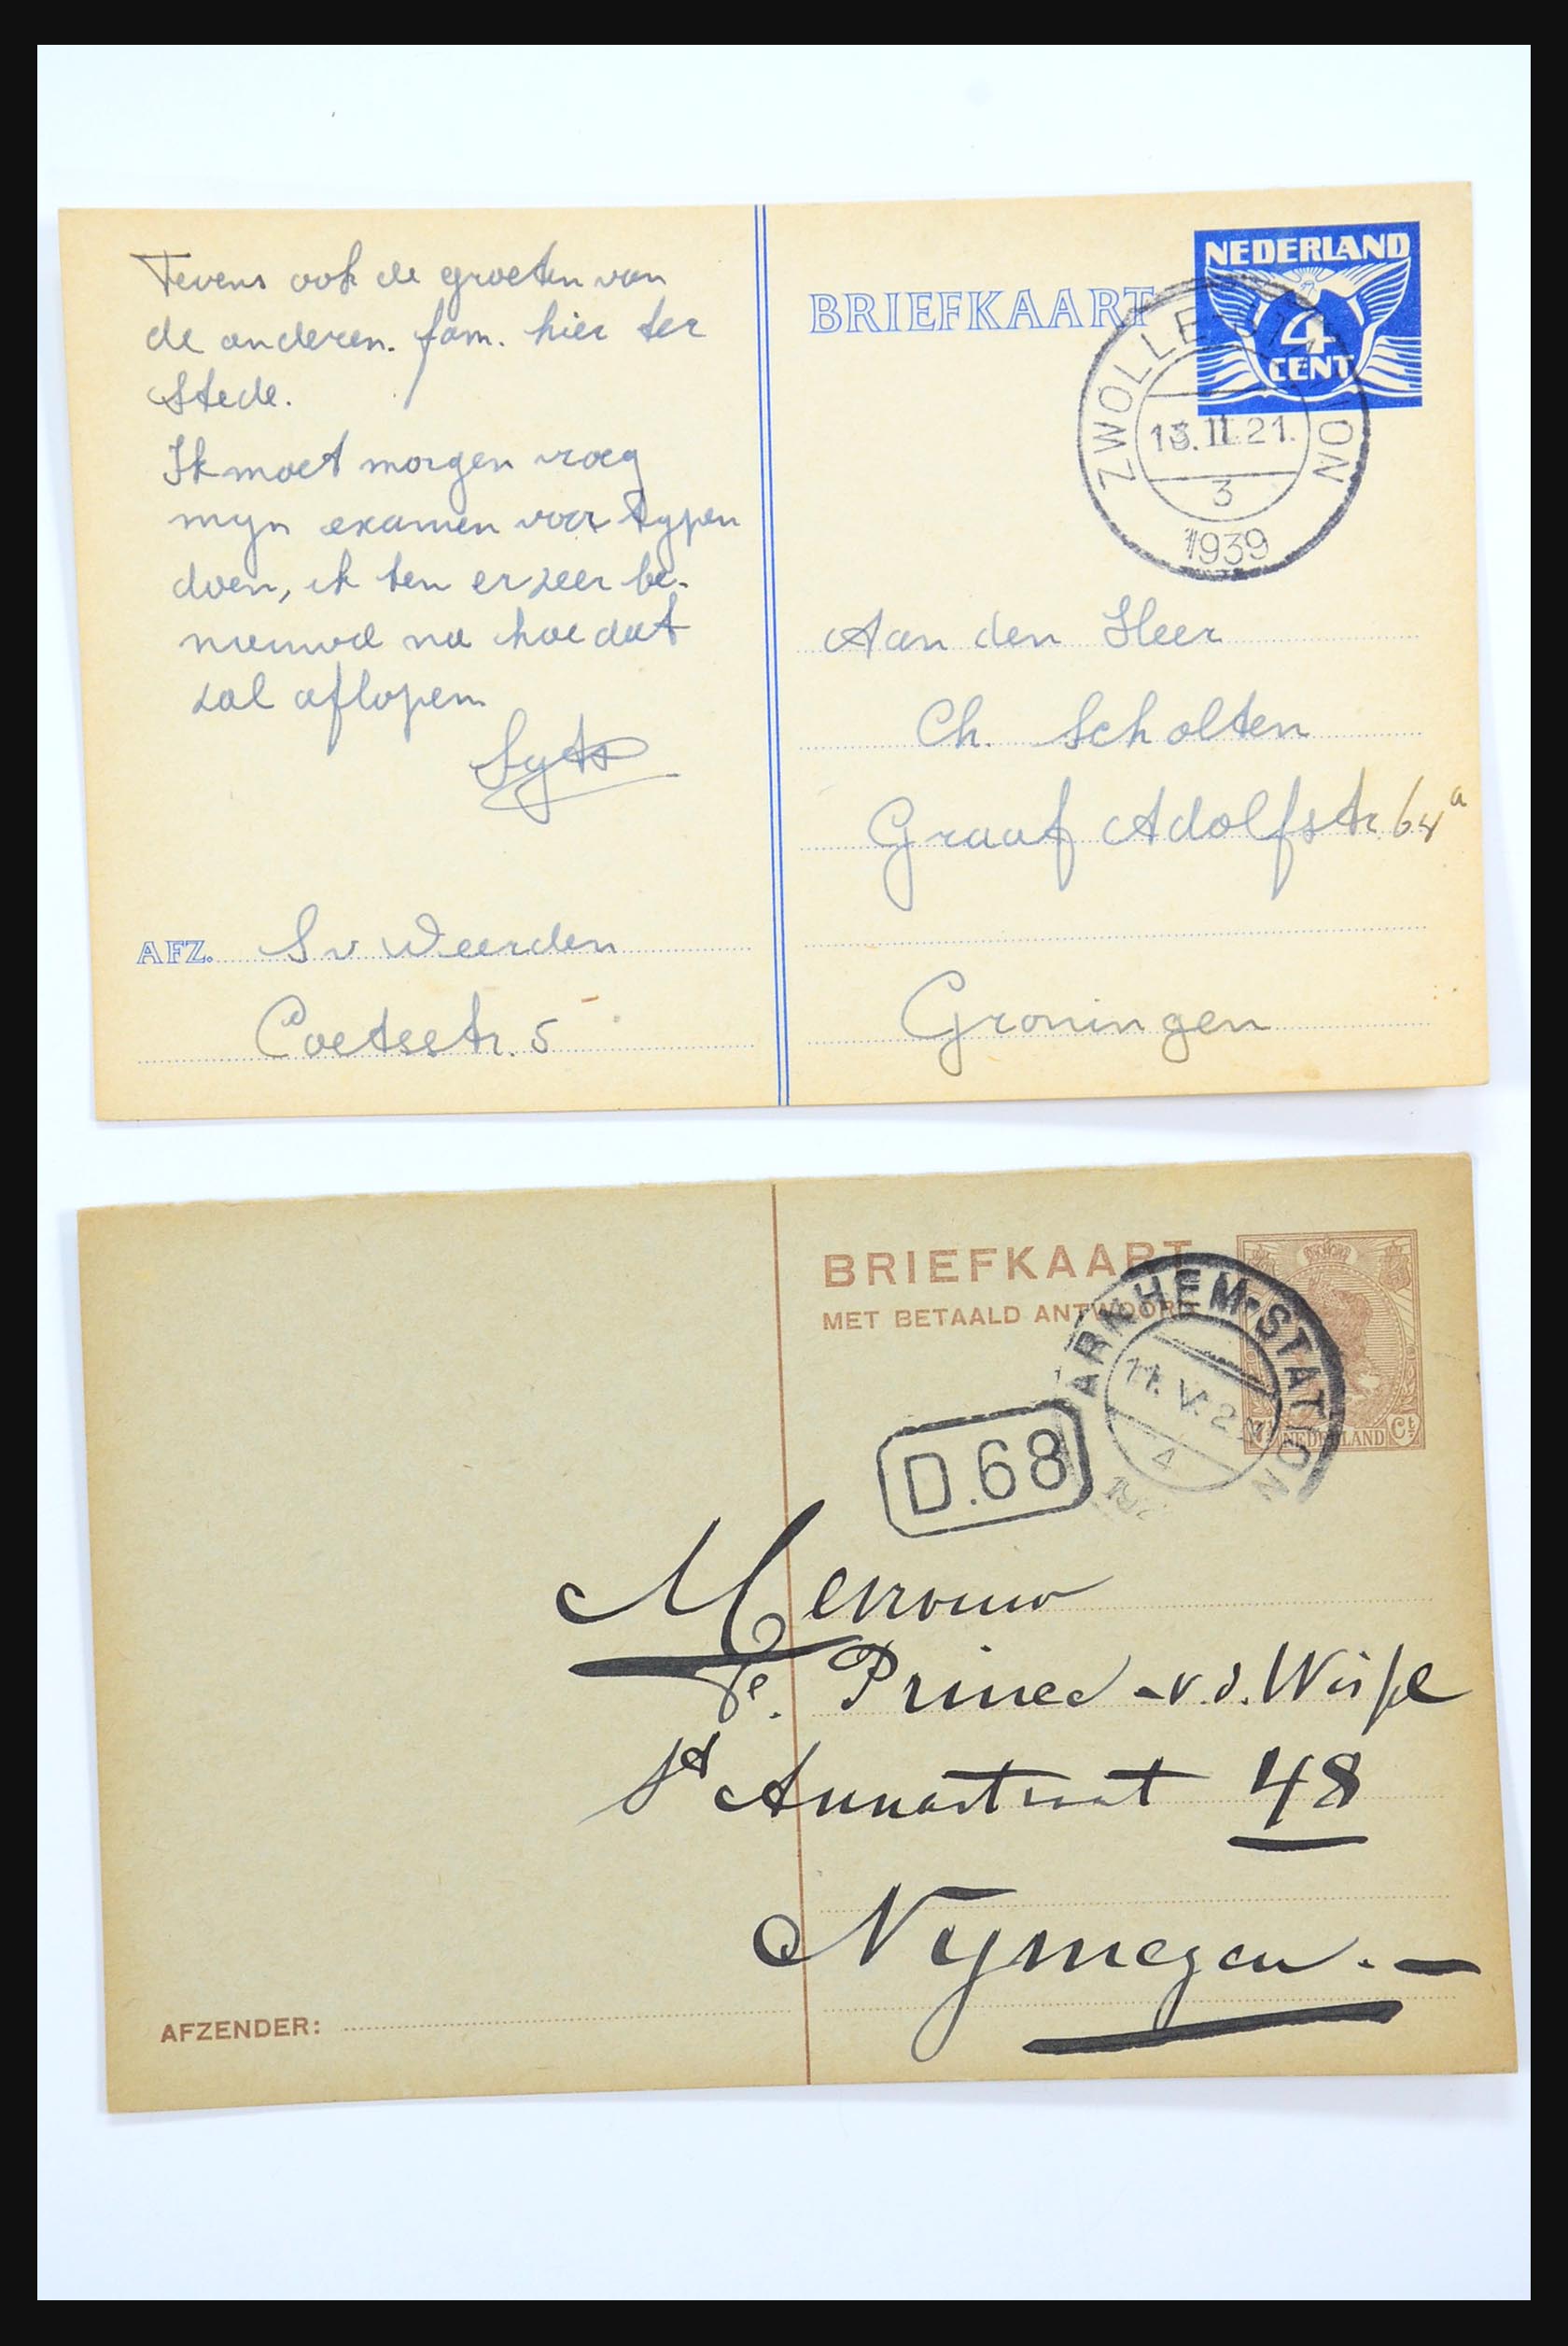 Tevens ook de groeten van
de anderen. fam. hier ter
stede.
Ik moet morgen vroeg
mijn examen voor typen
doen, ik ben er zeer be-
nieuwd na hoe dat
zal aflopen
Syts
AFZ. S v Weerden
Coetsstr. 5
BRIEFKAART
NEDERLAND
4
CENT
ZWOLLE STATION
13.II.21.
3
1939
Aan den Heer
Ch. Scholten
Graaf Adolfstr. 64a
Groningen
BRIEFKAART
MET BETAALD ANTWOORD
NEDERLAND Ct
ARNHEM-STATION
11.V.2
4
D.68
Mevrouw
de. Prince - v.d.
St Annastraat 48
Nymegen. -
AFZENDER: